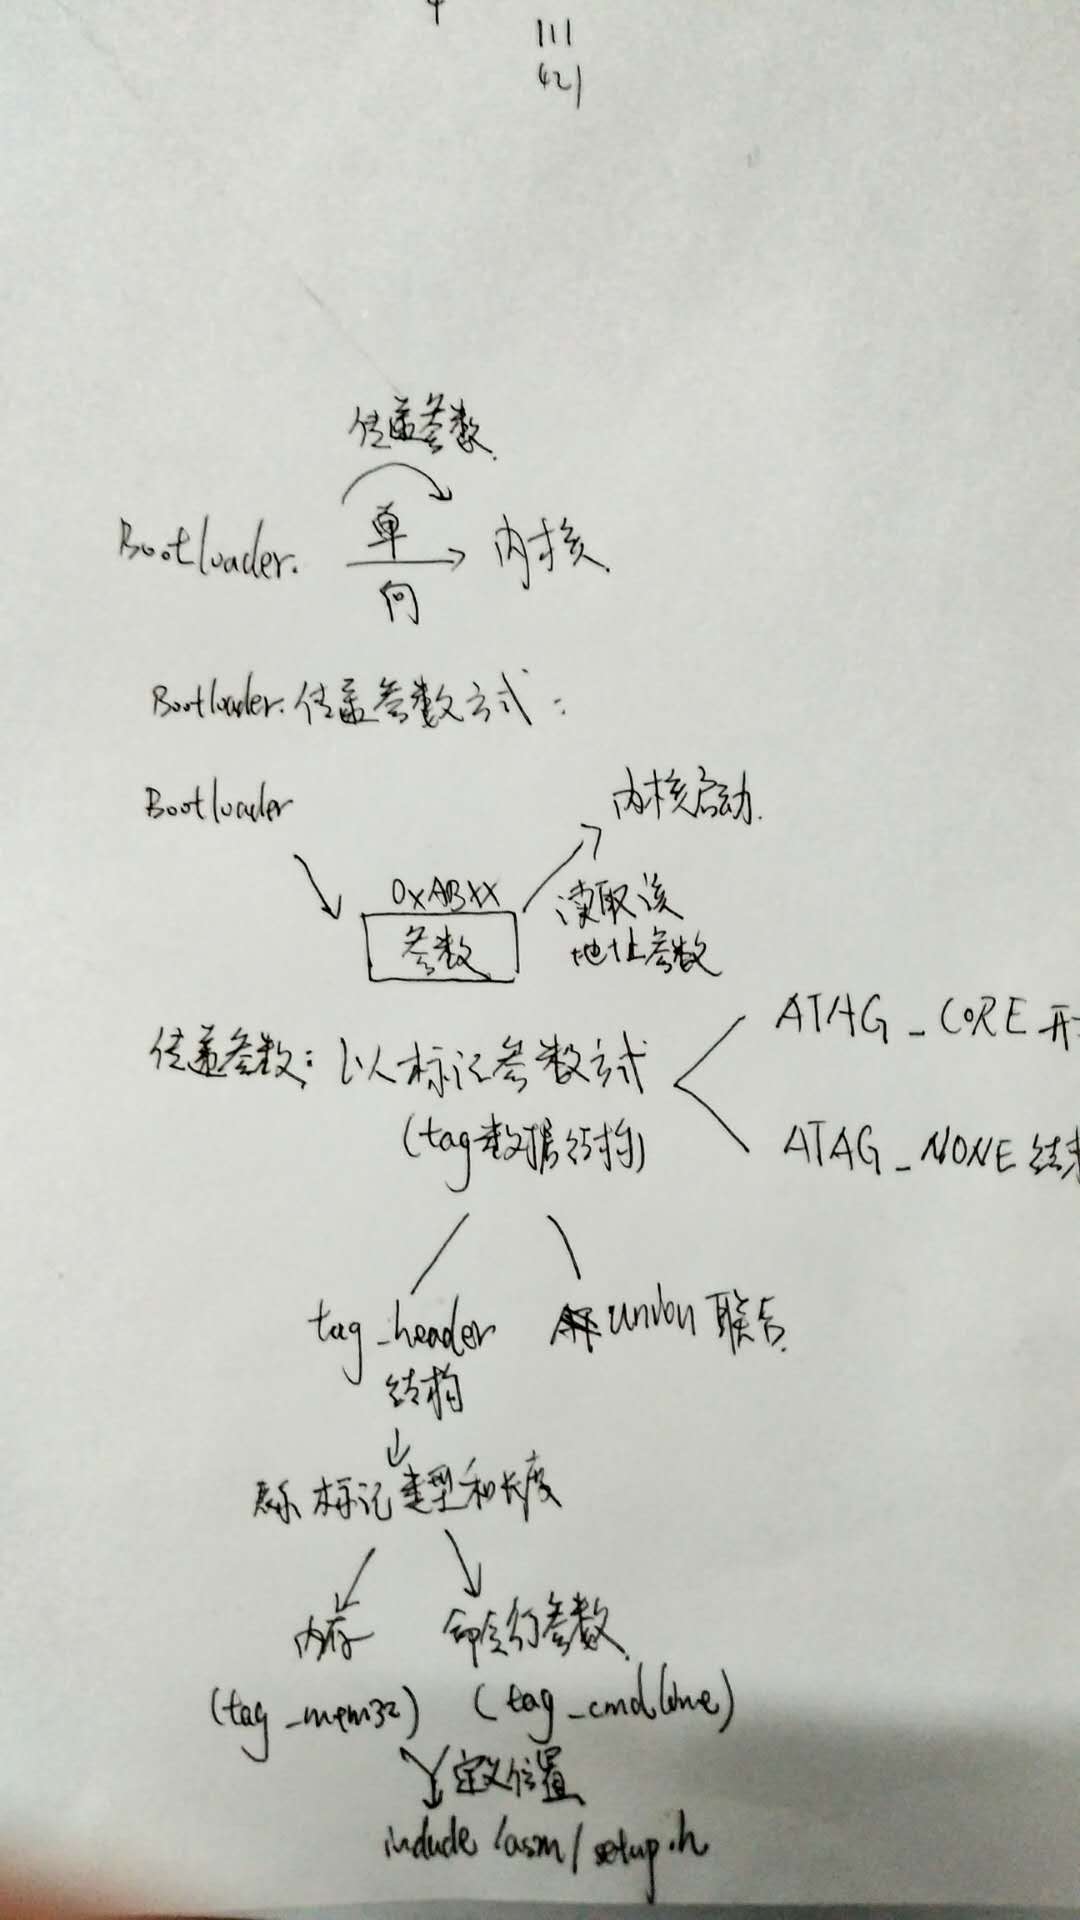 111
421
传递参数.
Bootloader. 单向 内核.
Bootloader.传递参数方式:
Bootloader
内核启动.
0xABXX
参数
读取该
地址参数
传递参数: 以标记参数方式
(tag数据结构)
ATAG_CORE 开
ATAG_NONE 结束
tag_header
结构
union 联合.
表示标记类型和长度
内存
命令行参数.
(tag_mem32) (tag_cmdline)
定义位置
include/asm/setup.h